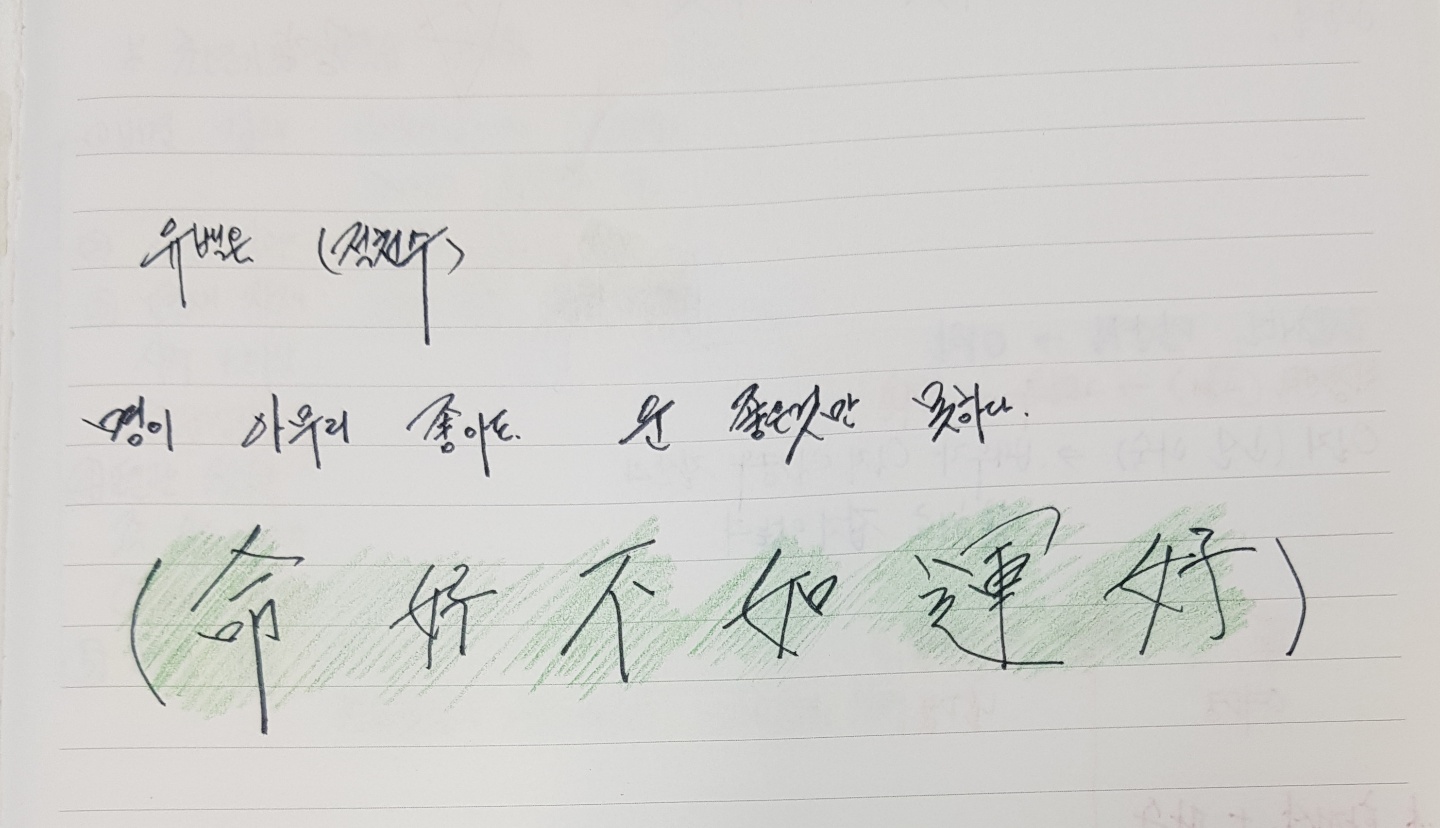 유백온 (적천수)
명이 아무리 좋아도 운 좋은것만 못하다.
(命 好 不 如 運 好)